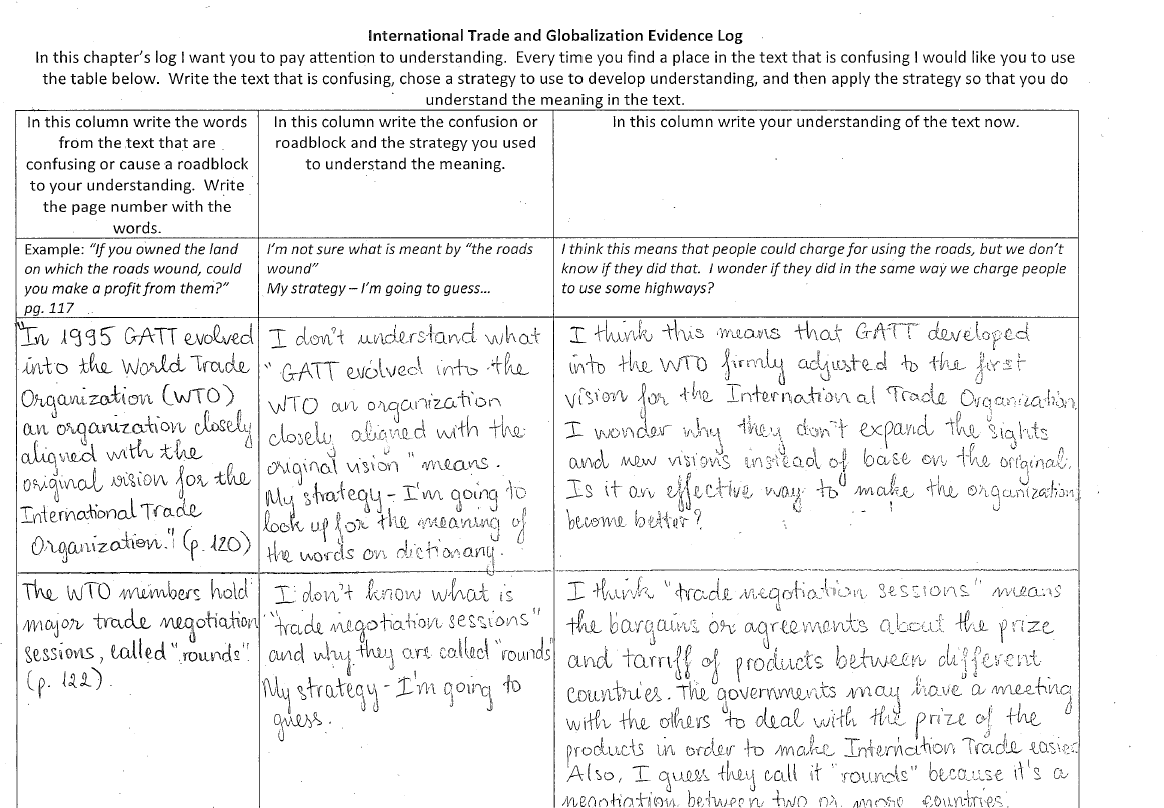 International Trade and Globalization Evidence Log
In this chapter's log I want you to pay attention to understanding. Every time you find a place in the text that is confusing I would like you to use
the table below. Write the text that is confusing, chose a strategy to use to develop understanding, and then apply the strategy so that you do
understand the meaning in the text.
In this column write the words
from the text that are
confusing or cause a roadblock
to your understanding. Write
the page number with the
words.
In this column write the confusion or
roadblock and the strategy you used
to understand the meaning.
In this column write your understanding of the text now.
Example: "If you owned the land
on which the roads wound, could
you make a profit from them?"
pg. 117
I'm not sure what is meant by "the roads
wound"
My strategy – I'm going to guess...
I think this means that people could charge for using the roads, but we don't
know if they did that. I wonder if they did in the same way we charge people
to use some highways?
"In 1995 GATT evolved
into the World Trade
Organization (WTO)
an organization closely
aligned with the
original vision for the
International Trade
Organization." (p. 120)
I don't understand what
"GATT evolved into the
WTO an organization
closely aligned with the
original vision" means.
My strategy - I'm going to
look up for the meaning of
the words on dictionary.
I think this means that GATT developed
into the WTO firmly adjusted to the first
vision for the International Trade Organization.
I wonder why they don't expand the sights
and new visions instead of base on the original.
Is it an effective way to make the organization
become better?
The WTO members hold
major trade negotiation
sessions, called "rounds".
(p. 122).
I don't know what is
"trade negotiation sessions"
and why they are called "rounds"
My strategy - I'm going to
guess.
I think "trade negotiation sessions" means
the bargains or agreements about the prize
and tarriff of products between different
countries. The governments may have a meeting
with the others to deal with the prize of the
products in order to make Internation Trade easier.
Also, I guess they call it "rounds" because it's a
negotiation between two or more countries.